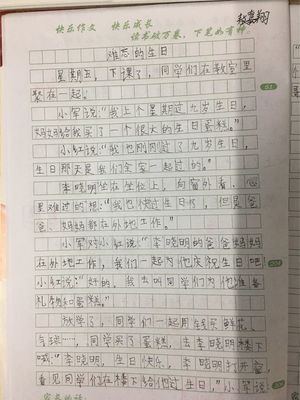 快乐作文 快乐成长
读书破万卷，下笔如有神
难忘的生日
星期五，下课了，同学们在教室里
聚在一起。
小军说：“我上个星期过九岁生日，
妈妈给我买了一个很大的生日蛋糕。”
小红说：“我也刚刚过了九岁生日，
生日那天是我们全家一起过的。”
李晓明坐在坐位上，向窗外看，心
里难过的想：“我也快过生日了，但是爸
爸、妈妈都在外地工作。”
小军对小红说：“李晓明的爸爸妈妈
在外地工作，我们一起为他庆祝生日吧
小红说：“好的，我去叫同学们为他准备
礼物和蛋糕。”
放学了，同学们一起用钱买鲜花、
气球……，同学买了蛋糕，去李晓明楼下
喊：“李晓明，生日快乐。李晓明打开窗，
看见同学们在楼下给他过生日，”小军说